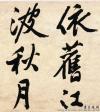 依舊江
波秋月